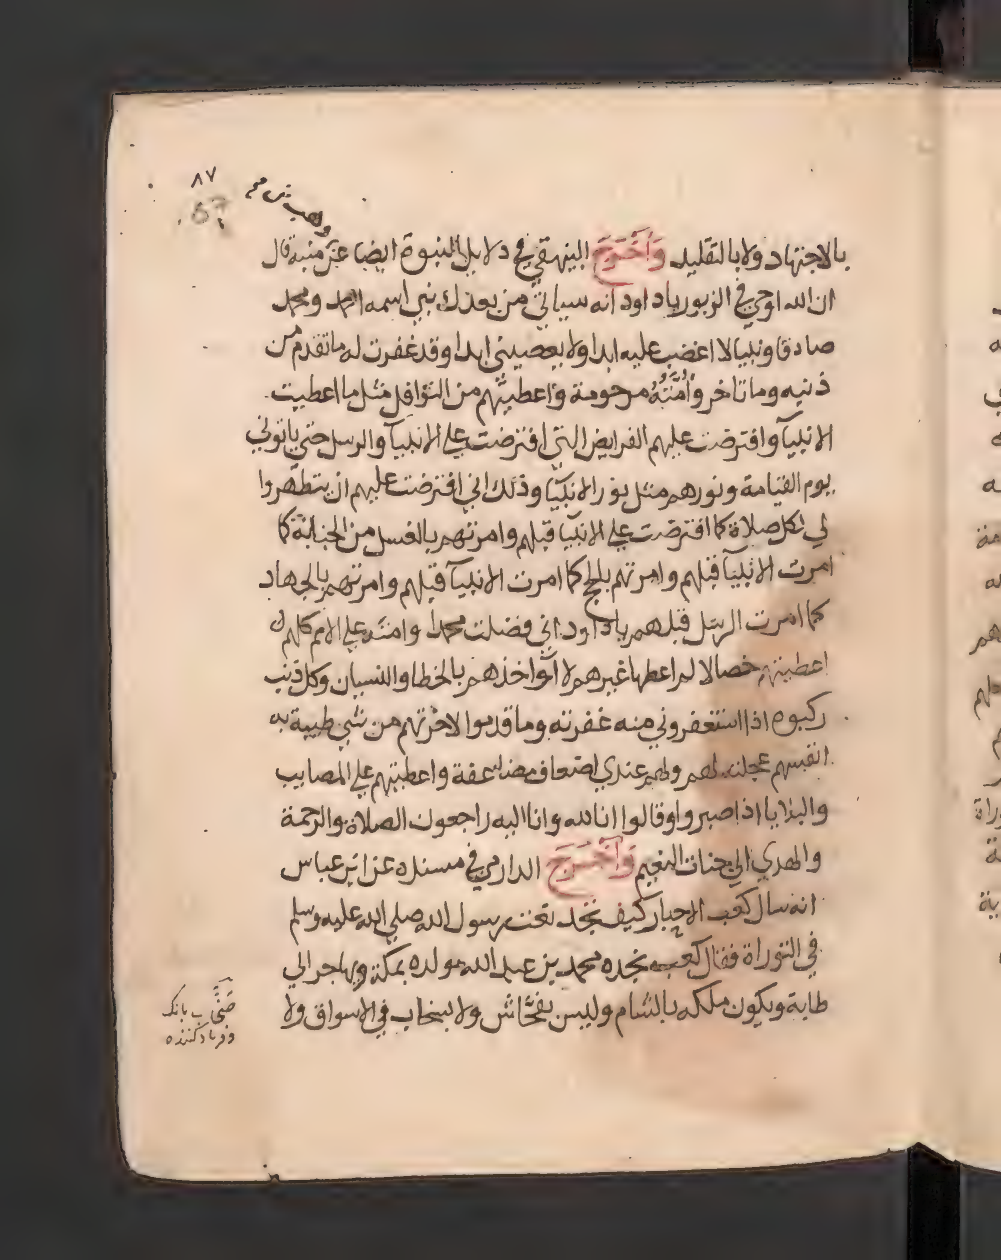 ٨٧
57
وهب بن
بالاجتهاد ولا بالتقليد وَأَخْرَجَ البيهقي في دلايل النبوة ايضا عن منبه قال
ان الله اوحي في الزبور ياداود انه سياتي من بعدك نبي اسمه احمد ومحمد
صادقا ونبيا لا اغضب عليه ابدا ولا يعصيني ابدا وقد غفرت له ما تقدم من
ذنبه وما تاخر وأُمَّتُهُ مرحومة واعطيتهم من النوافل مثل ما اعطيت
الانبيآ وافترضت عليهم الفرايض التي افترضت علي الانبيآ والرسل حتي ياتوني
يوم القيامة ونورهم مثل نور الانبيآ وذلك اني افترضت عليهم ان يتطهروا
لي لكل صلاة كما افترضت علي الانبيآ قبلهم وامرتهم بالغسل من الجنابة كما
امرت الانبيآ قبلهم وامرتهم بالحج كما امرت الانبيآ قبلهم وامرتهم بالجهاد
كما امرت الرسل قبلهم ياداود اني فضلت محمدا وامته علي الامم كلهم
اعطيتهم خصالا لم اعطها غيرهم لا اواخذهم بالخطا والنسيان وكل ذنب
ركبوه اذا استغفروني منه غفرته وما قدموا لاخرتهم من شي طيبة به
انفسهم عجلته لهم ولهم عندي اضعاف مضاعفة واعطيتهم علي المصايب
والبلايا اذا صبروا وقالوا انا لله وانا اليه راجعون الصلاة والرحمة
والهدي الي جنات النعيم وَأَخْرَجَ الدارمي في مسنده عن ابن عباس
انه سال كعب الاحبار كيف تجد نعت رسول الله صلي الله عليه وسلم
في التوراة فقال كعب نجده محمد بن عبد الله مولده بمكة ويهاجر الي
طابة ويكون ملكه بالشام وليس بفحَّاش ولا بسخاب في الاسواق ولا
صخَّاب بانك
وفرياد كننده